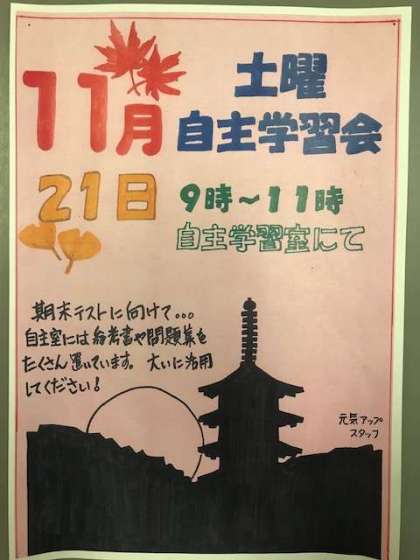 11月
土曜
自主学習会
21日
9時～11時
自主学習室にて
期末テストに向けて。。。
自主室には参考書や問題集を
たくさん置いています。大いに活用
してください！
元気アップ
スタッフ